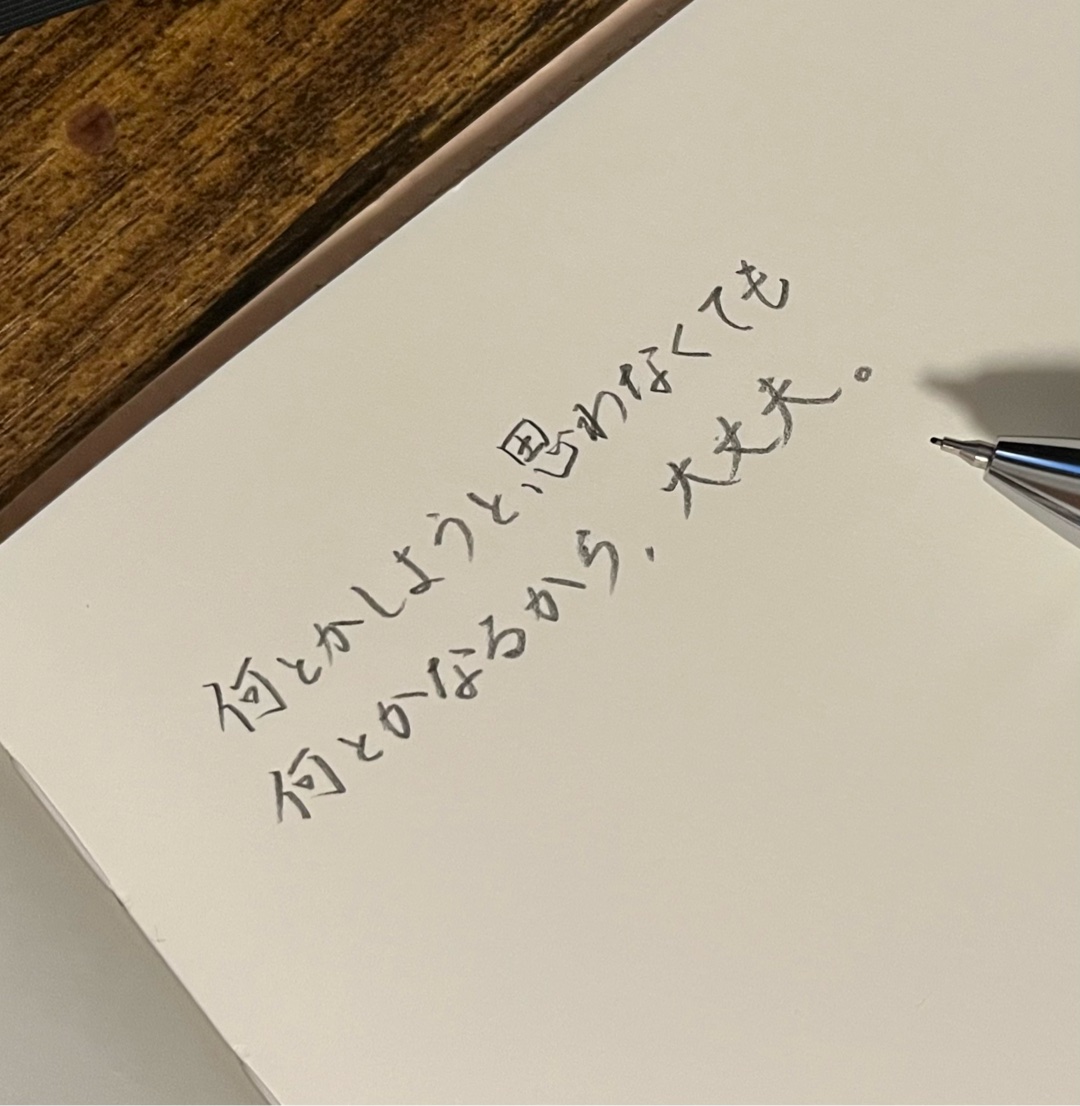 何とかしようと思わなくても
何とかなるから、大丈夫。